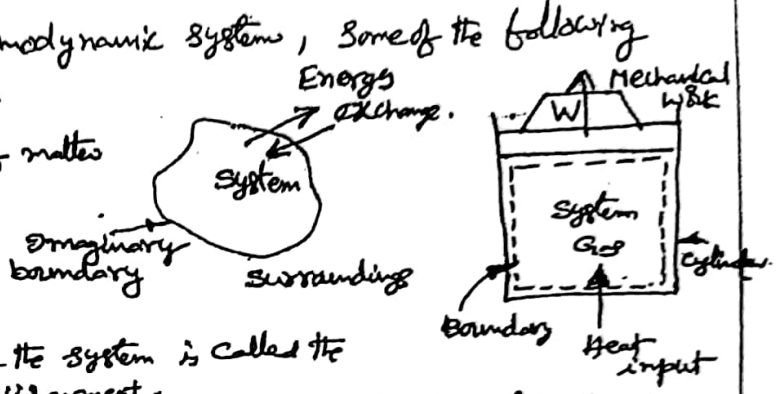 modynamic system, Some of the following
Energy
exchange.
Mechanical
work
W
matter
System
System
Gas
Imaginary
boundary
Surroundings
Cylinder.
Boundary
Heat
input
the system is called the